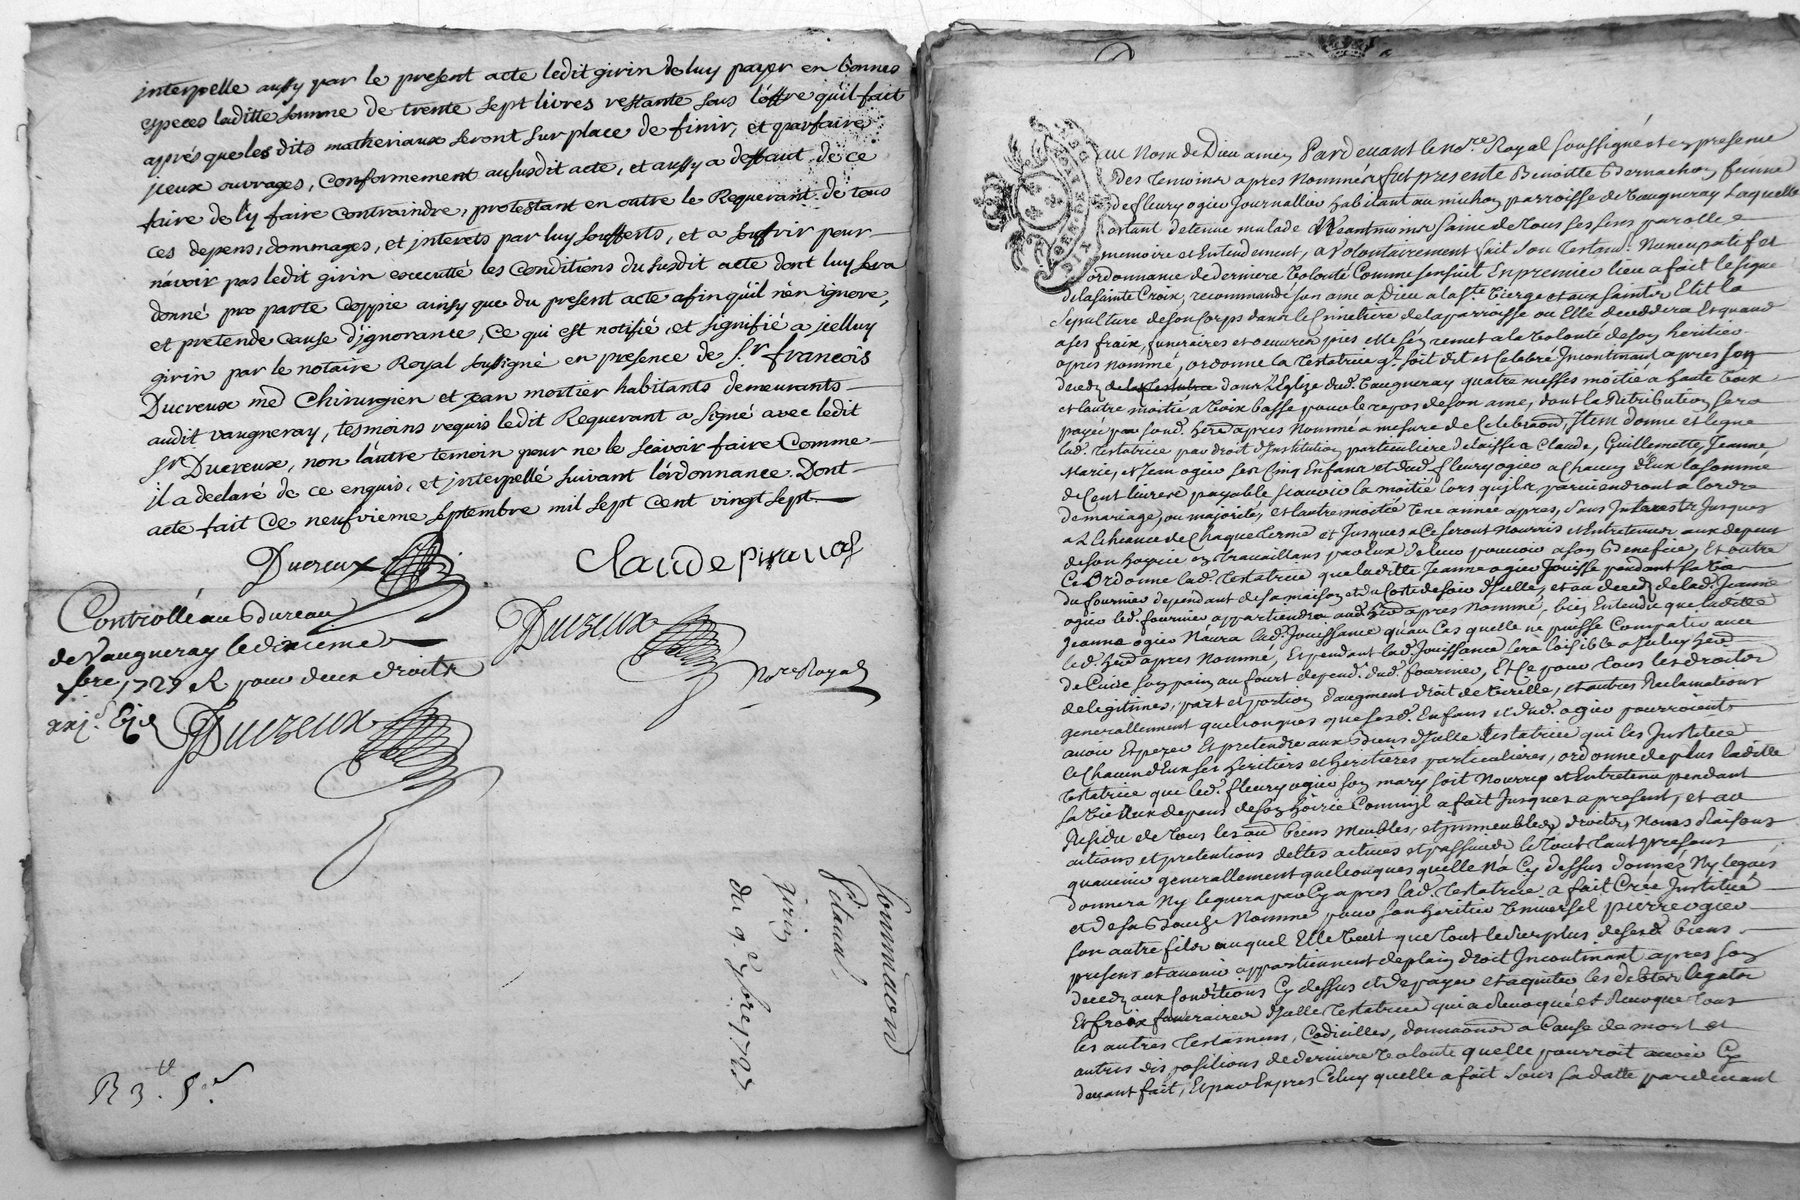 interpelle aussy par le present acte ledit girin de luy payer en bonnes
especes laditte somme de trente sept livres restante sous l'offre qu'il fait
aprés que les dits matheriaux seront sur place de finir, et parfaire
jceux ouvrages, conformement au susdit acte, et aussy a deffaut de ce
faire de l'y faire contraindre, protestant en outre le Requerant de tous
ces depens, dommages, et interets par luy soufferts, et a souffrir pour
n'avoir pas ledit girin executté les conditions du susdit acte dont luy sera
donné pro parte coppie ainsy que du present acte afin qu'il n'en ignore,
et pretende cause d'jgnorance, ce qui est notifié, et signifié a jcelluy
girin par le notaire Royal soussigné en presence de Sr. francois
Ducreux me chirurgien et jean mortier habitants demeurants
audit vaugneray, tesmoins requis ledit Requerant a signé avec ledit
Sr Ducreux, non l'autre temoin pour ne le scavoir faire comme
il a declaré de ce enquis, et interpellé suivant l'ordonnance. Dont
acte fait ce neufvieme septembre mil sept cent vingt sept
Ducreux
Claude
Controllé au Bureau
Ducreux
de Vaugneray le dixieme
nore Royal
7bre 1727 R pour deux droits
Ducreux
Sommation
girin
du 9e 7bre 1727
R 3. 5s.
GEN. DE LYON
DIX
Au Nom de Dieu amen Pardevant le nore Royal soussigné et en presence
des Temoins apres Nommés fut presente Benoitte Bernachon femme
de fleury ogier Journallier habitant au michon parroisse de Vaugneray Laquelle
estant detenue malade Neantmoins saine de tous ses sens parolle
memoire et Entendement, a Volontairement fait son Testamt. Nuncupatif et
ordonnance de derniere Volonté Comme sensuit En premier lieu a fait le signe
de la sainte Croix, recommandé son ame a Dieu a la Ste. Vierge et aux saints Elit la
sepulture de son Corps dans le Cimetiere de la parroisse ou Elle decedera et quand
a ses fraix funeraires et oeuvres pies elle s'en remet a la volonté de son heritier
apres nommé, ordonne la Testatrice q. soit dit et Celebré Incontinant apres son
decedz de la Testatrice dans l'Eglize dud. Vaugneray quatre messes moitié a haute Voix
et l'autre moitié a Voix basse pour le repos de son ame, dont la Retribution sera
payée par sond. herer apres Nommé a mesure de Celebraon, Item donne et legue
lad. testatrice par droit d'Institution particuliere delaisse a Claude, Guillemette, Jeanne
Marie, et Jean ogier ses Cinq Enfans et dud. fleury ogier a Chacun d'Eux la somme
de Cent livres payable scavoir la moitié lors qu'ils parviendront a l'ordre
de mariage, ou majorité, et l'autre moitié une année apres, sans Interests Jusques
a l'Echeance de Chaque terme et Jusques a Ce seront Nourris et Entretenus aux depens
de son hoirie en travaillans par Eux de leur pouvoir a son Benefice, Et outre
Ce Ordonne lad. Testatrice que laditte Jeanne ogier Jouisse pendant sa vie
du fournier dependant de sa maison et du Coté de soir d'Icelle, et au decedz de lad. Jeanne
ogier led. fournier appartiendra aud. herer apres Nommé, bien Entendu que laditte
Jeanne ogier N'aura lad. Jouissance qu'au Cas quelle ne puisse Compatir avec
led. herer apres Nommé, Et pendant lad. Jouissance sera loisible a Iceluy herer
de Cuire son pain au fourt depend. dud. fournier, Et Ce pour tous les droits
de legitimes, part et portion d'augment droit de Virille, et autres Reclamations
generallement quelconques que sesd. Enfans et dud. ogier pourroient
avoir Esperer Et pretendre aux Biens d'Icelle Testatrice qui les Institue
Et Chacun d'Eux ses heritiers et heritieres particulieres, ordonne de plus laditte
Testatrice que led. fleury ogier son mary soit Nourry et Entretenu pendant
sa Vie aux depens de son hoirie Comm'il a fait Jusques a present, et au
Residu de tous les aud. biens Meubles, et Immeubles, droits, Noms Raisons
actions et pretentions dettes actives et passives le tout tant presens
qu'avenir generallement quelconques quelle N'a Cy dessus donnés Ny legués
donnera Ny leguera par Cy apres lad. Testatrice a fait Créé Institué
et de sa Bouche Nommé pour son heritier Universel pierre ogier
son autre fils auquel Elle Veut que tout le surplus de sesd. biens
presens et avenir appartiennent de plain droit Incontinant apres son
decedz aux Conditions Cy dessus et de payer et aquiter les debtes legats
Et fraix funeraires d'Icelle Testatrice qui a Revoqué et Revoque tous
les autres Testamens, Codicilles, donnaons a Cause de mort et
autres dispositions de derniere Volonté quelle pourroit avoir Cy
devant fait, Et par Expres Celuy quelle a fait sous sa datte pardevant